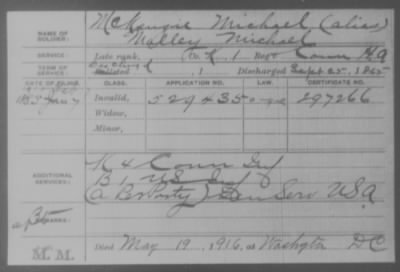 NAME OF SOLDIER: McKenzie Michael (alias)
Malley Michael
SERVICE: Late rank, Co. K, 1 Reg't Conn H A
TERM OF SERVICE: Enlisted , 1 Discharged Sept 25, 1865
DATE OF FILING. CLASS. APPLICATION NO. LAW. CERTIFICATE NO.
Invalid, 529435 297266
Widow,
Minor,
ADDITIONAL SERVICES: K 4 Conn Inf
B 1 US Inf
(a Bv Party) Gen Serv U S A
M. M.
Died May 19, 1916, at Washgtn D C